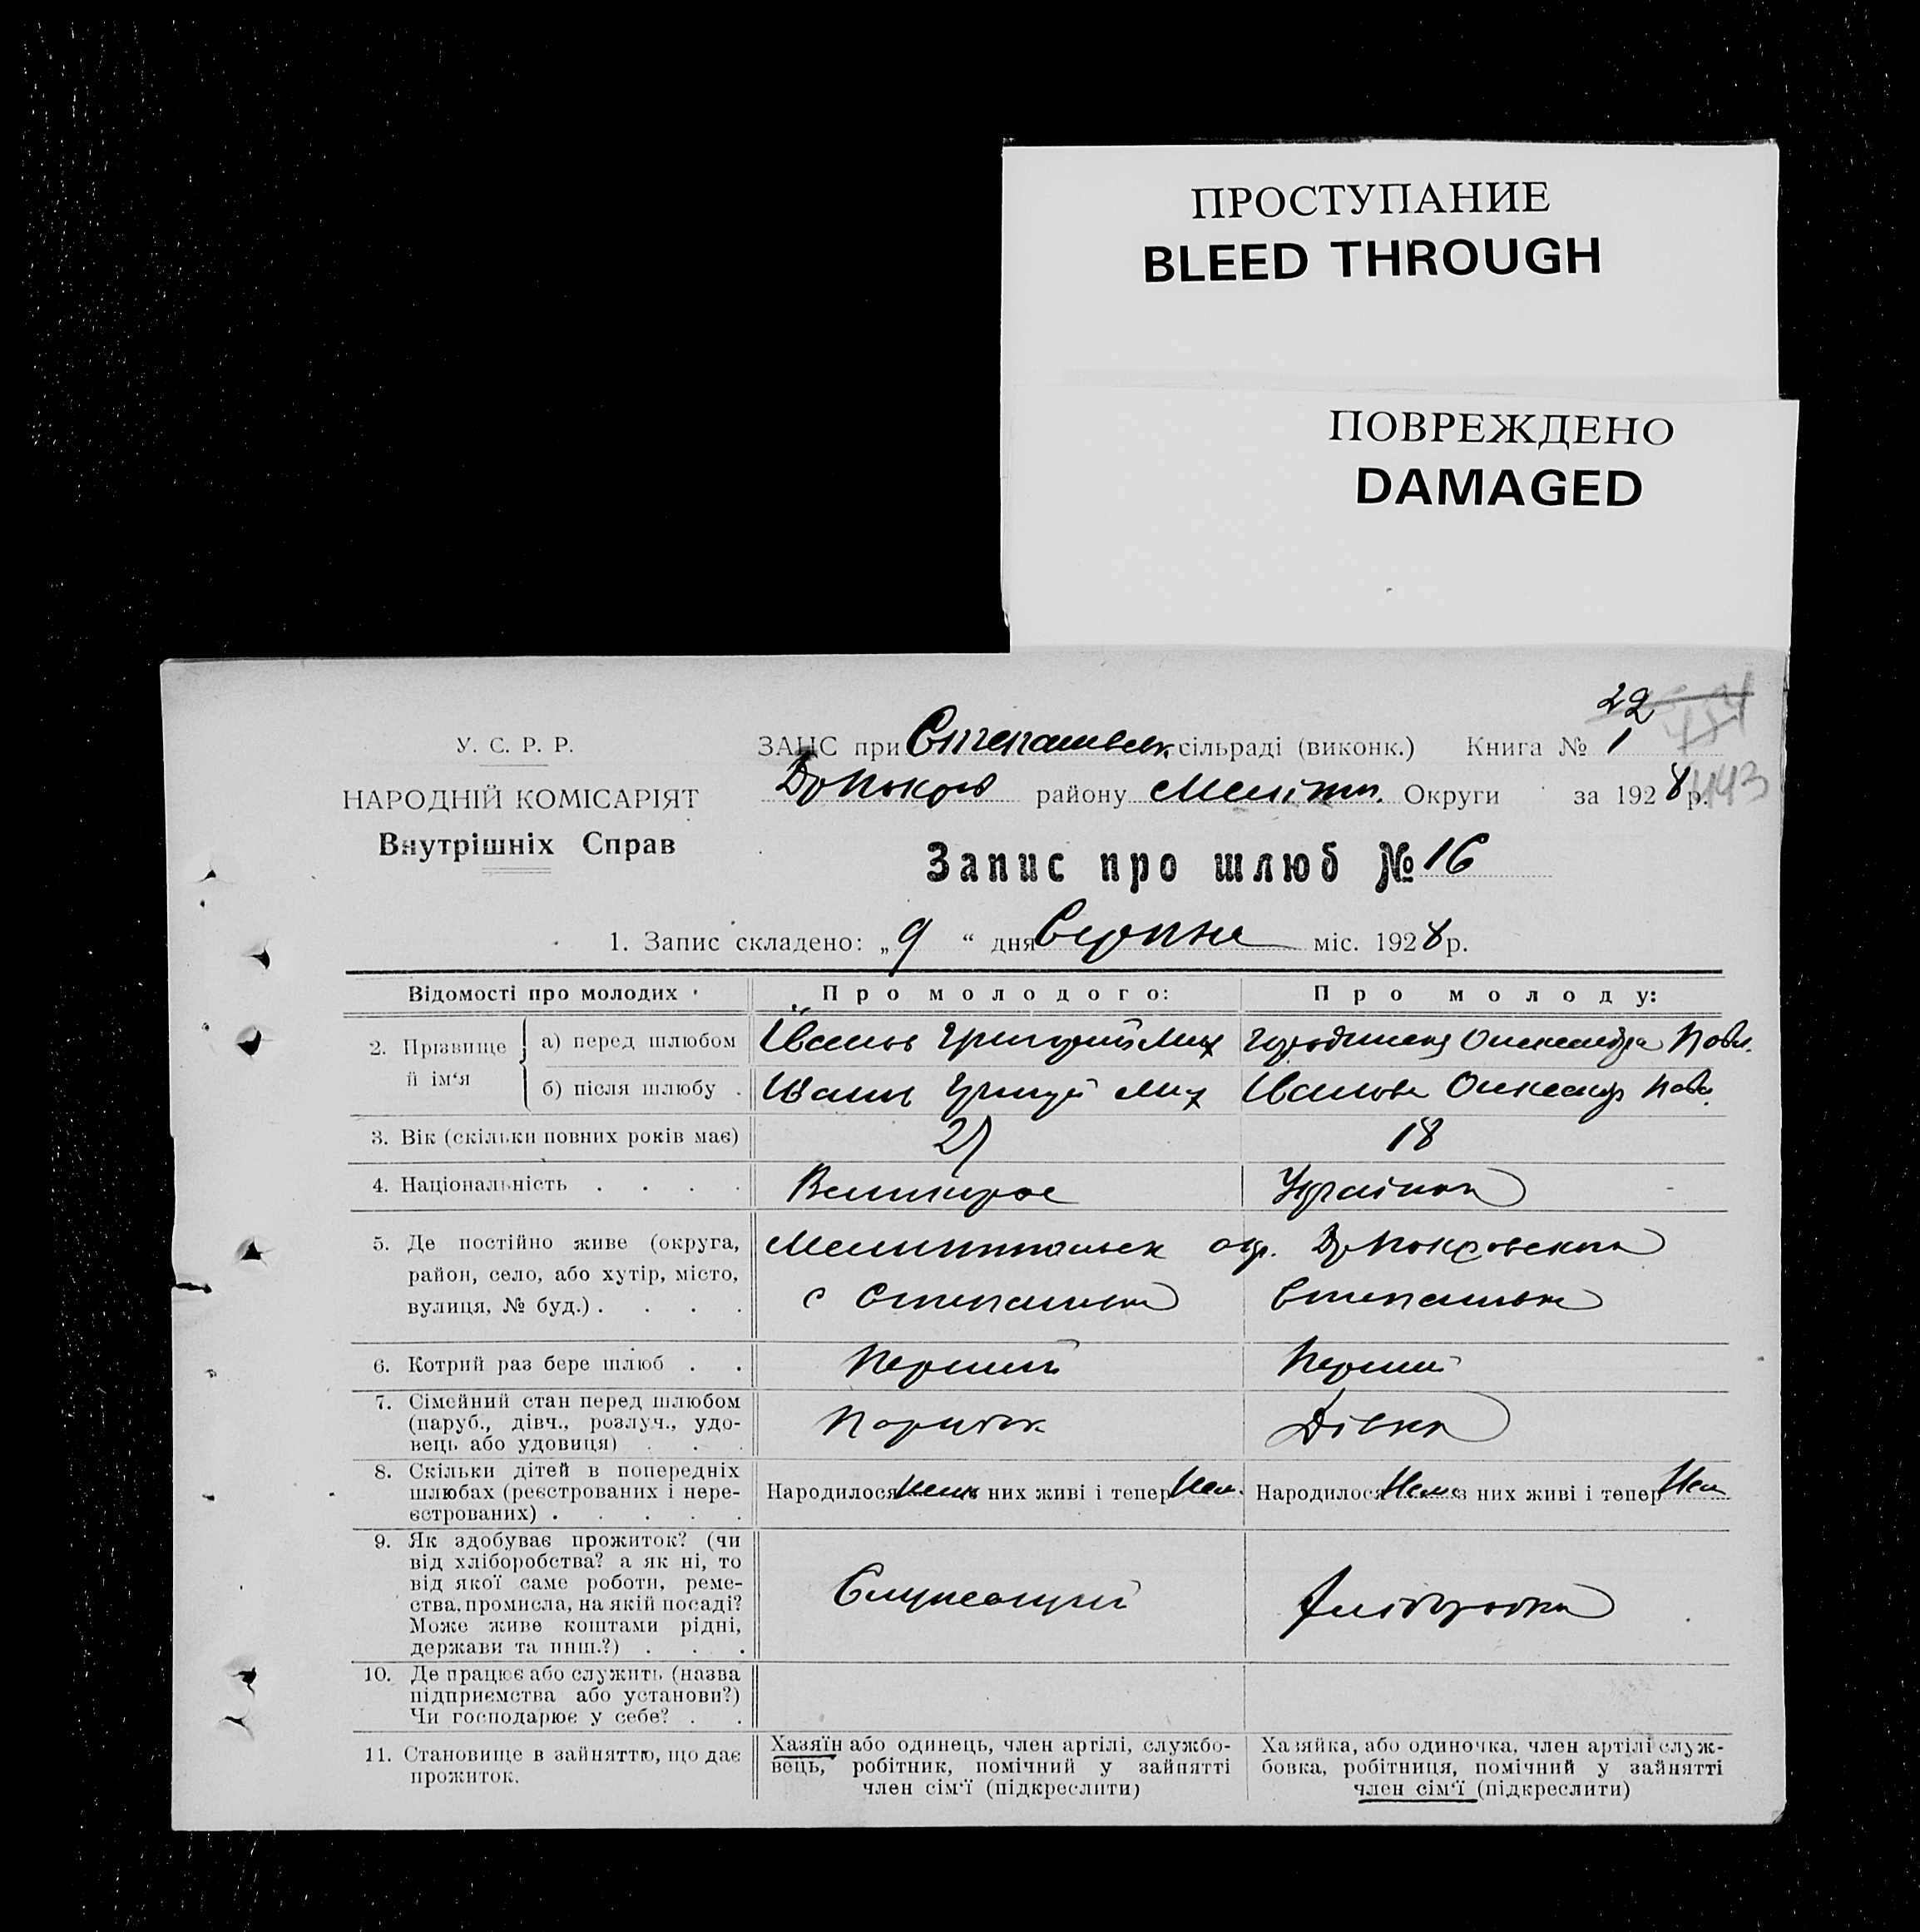 ПРОСТУПАНИЕ
BLEED THROUGH
ПОВРЕЖДЕНО
DAMAGED
22
У. С. Р. Р.
НАРОДНІЙ КОМІСАРІЯТ
Внутрішніх Справ
ЗАНС при Степанівськ. сільраді (виконк.) Книга № 1
району Меліт. Округи за 1928 р. 443
Запис про шлюб № 16
1. Запис складено: „9“ дня Серпня міс. 1928 р.
Відомості про молодих
Про молодого:
Про молоду:
2. Прізвище й ім‘я
а) перед шлюбом
Іванов Григорий Мих
Олександра Павл.
б) після шлюбу .
Іванов Григорій Мих
Іванова Олександр Павл.
3. Вік (скільки повних років має)
18
4. Національність . . . .
Великорос
Українка
5. Де постійно живе (округа,
район, село, або хутір, місто,
вулиця, № буд.) . . . .
Мелитпольск окр.
с Степанівка
Степанівка
6. Котрий раз бере шлюб . .
Перший
Перший
7. Сімейний стан перед шлюбом
(паруб., дівч., розлуч., удо-
вець або удовиця) . . .
Парубок
Дівка
8. Скільки дітей в попередніх
шлюбах (реєстрованих і нере-
єстрованих) . . . . .
Народилося нема з них живі і тепер Нем.
Народилося Нема з них живі і тепер Нем
9. Як здобуває прожиток? (чи
від хліборобства? а як ні, то
від якої саме роботи, реме-
ства, промисла, на якій посаді?
Може живе коштами рідні,
держави та инш.?) . . .
Служащий
Хліборобка
10. Де працює або служить (назва
підприємства або установи?)
Чи господарює у себе? . .
11. Становище в зайняттю, що дає
прожиток.
Хазяїн або одинець, член артілі, службо-
вець, робітник, помічний у зайнятті
член сім‘ї (підкреслити)
Хазяйка, або одиночка, член артілі служ-
бовка, робітниця, помічний у зайнятті
член сім‘ї (підкреслити)